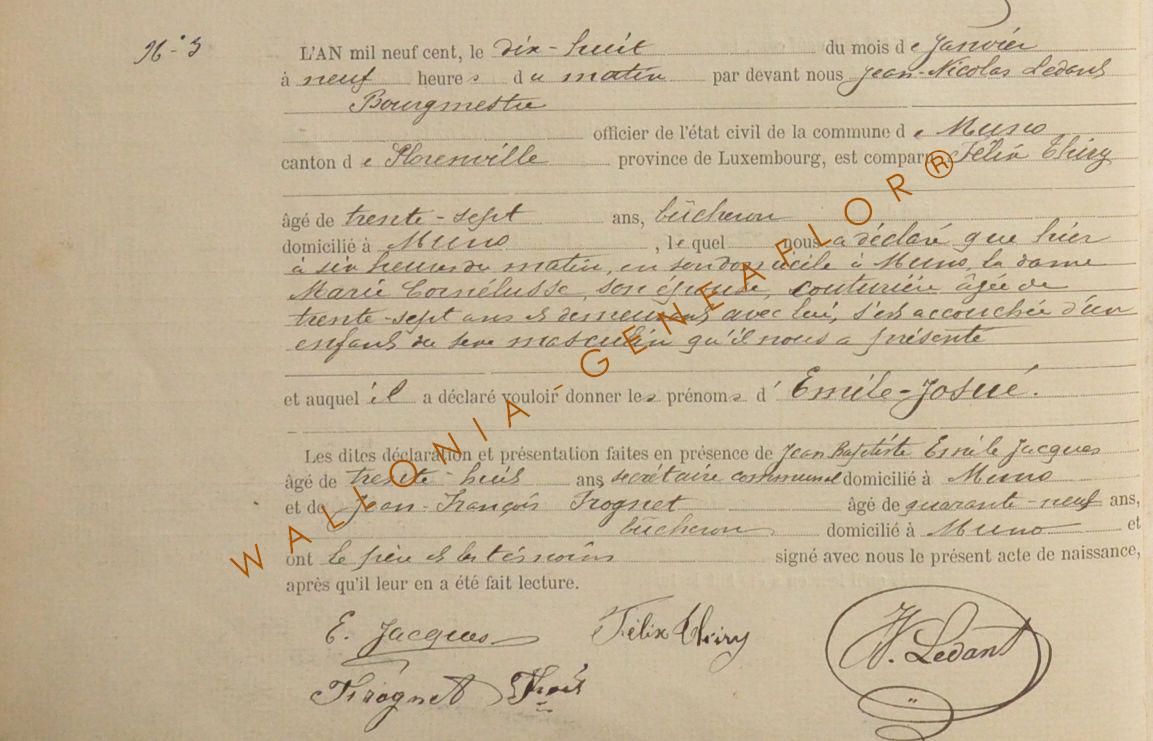 N° 3
L'AN mil neuf cent, le dix-huit du mois de Janvier
à neuf heures du matin par devant nous Jean-Nicolas Ledant
Bourgmestre
officier de l'état civil de la commune de Muno
canton de Florenville province de Luxembourg, est comparu Félix Thiry
âgé de trente-sept ans, bûcheron
domicilié à Muno, lequel nous a déclaré que hier
à six heures du matin, en son domicile à Muno, la dame
Marie Cornélusse, son épouse, couturière âgée de
trente-sept ans et demeurant avec lui, s'est accouchée d'un
enfant du sexe masculin qu'il nous a présenté
et auquel il a déclaré vouloir donner les prénoms d' Emile-Josué.
Les dites déclaration et présentation faites en présence de Jean Baptiste Emile Jacques
âgé de trente-huit ans secrétaire communal domicilié à Muno
et de Jean-François Frognet âgé de quarante-neuf ans,
bûcheron domicilié à Muno et
ont le père et les témoins signé avec nous le présent acte de naissance,
après qu'il leur en a été fait lecture.
E. Jacques Félix Thiry N. Ledant
Frognet
WALLONIA-GENEAFLOR®